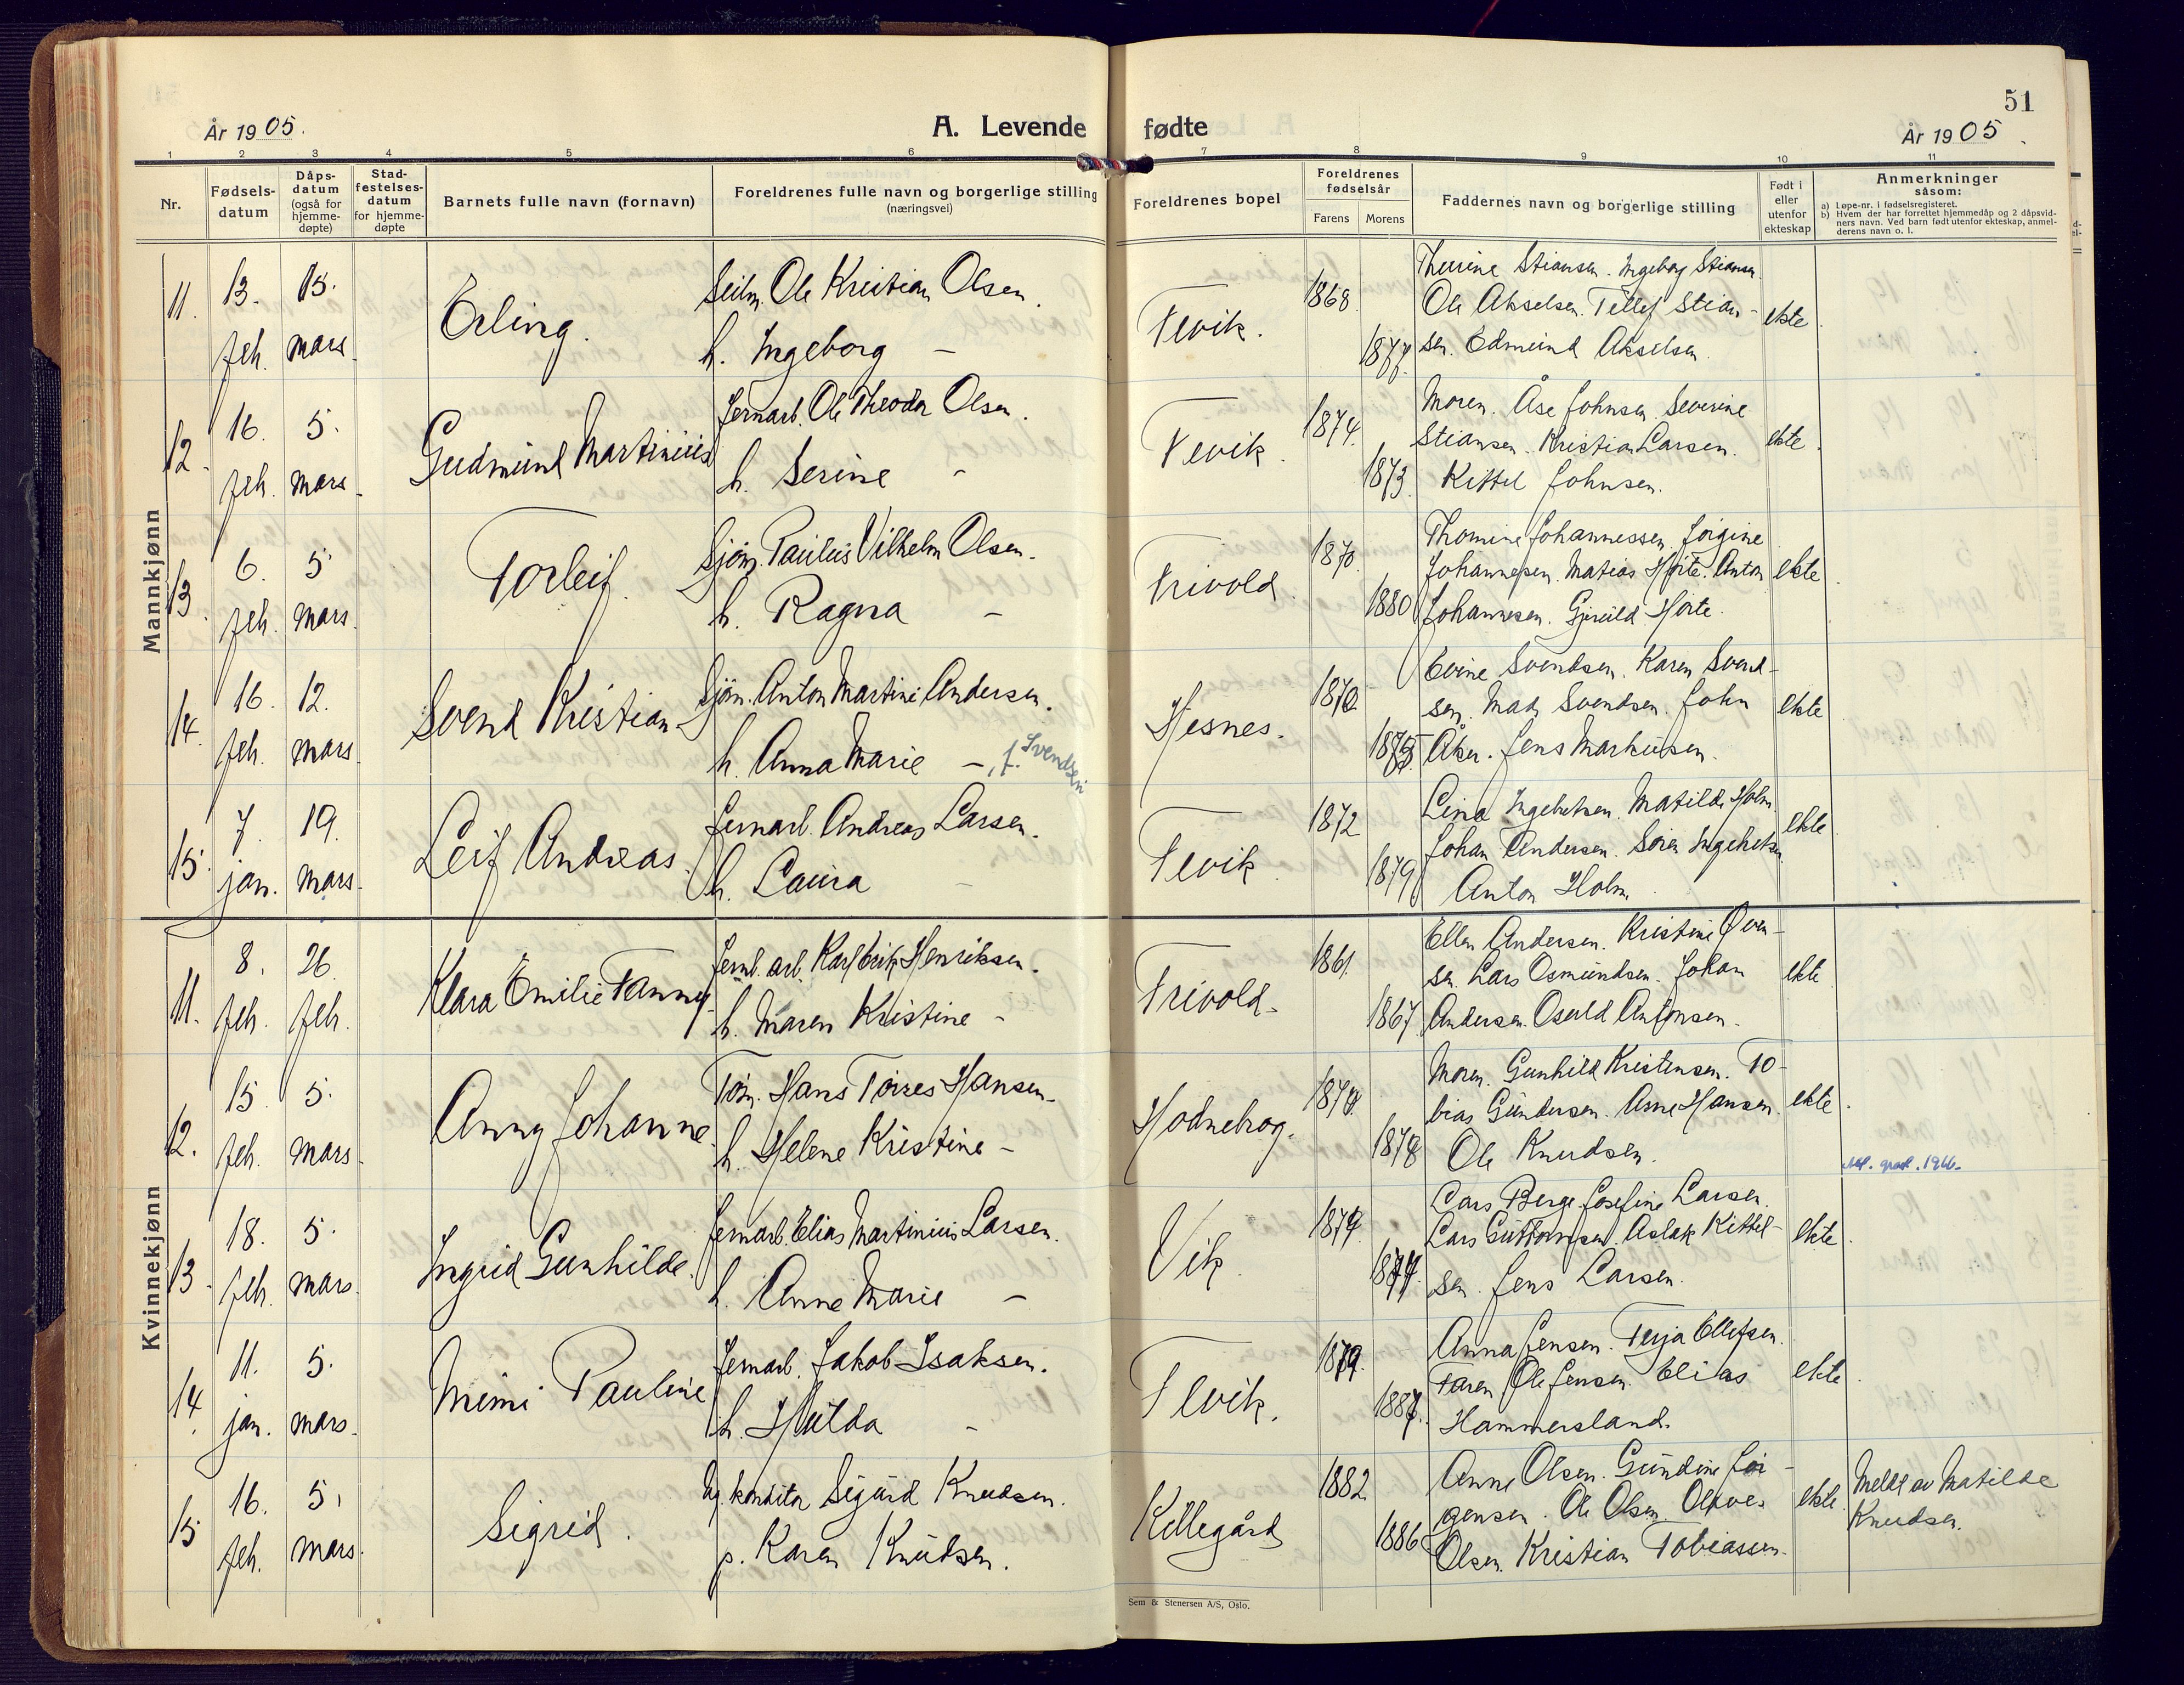 51
År 1905.
A. Levende fødte
År 1905.
1 2 3 4 5 6 7 8 9 10 11
Nr.
Fødsels-
datum
Dåps-
datum
(også for
hjemme-
døpte)
Stad-
festelses-
datum
for hjemme-
døpte
Barnets fulle navn (fornavn)
Foreldrenes fulle navn og borgerlige stilling
(næringsvei)
Foreldrenes bopel
Foreldrenes
fødselsår
Farens Morens
Faddernes navn og borgerlige stilling
Født i
eller
utenfor
ekteskap
Anmerkninger
såsom:
a) Løpe-nr. i fødselsregisteret.
b) Hvem der har forrettet hjemmedåp og 2 dåpsvid-
ners navn. Ved barn født utenfor ekteskap, anmel-
derens navn o. l.
Mannkjønn
11. 13. feb. 15. mars Erling.
Seilm. Ole Kristian Olsen.
h. Ingeborg –
Fevik. 1868 1877.
Thurine Stiansen. Ingeborg Stiansen.
Ole Akselsen. Tellef Stian-
sen. Edmund Akselsen.
ekte
12. 16. feb. 5. mars Gudmund Martinius
Jernarb. Ole Theodor Olsen.
h. Serine –
Fevik. 1874. 1873.
Moren. Åse Johnsen. Severine
Stiansen. Kristian Larsen.
Kittel Johnsen.
ekte
13. 6. feb. 5. mars Torleif.
Sjøm. Paulus Vilhelm Olsen.
h. Ragna –
Trivold. 1870. 1880
Thomine Johannessen. Jörgine
Johannesen. Matias Horte. Anton
Johannesen. Gjruld Horte.
ekte
14. 16. feb. 12. mars Svend Kristian
Sjøm. Anton Martin Andersen.
h. Anna Marie – , f. Svendsen
Hesnes. 1870 1875
Evine Svendsen. Karen Svend-
sen. Mads Svendsen. John
Aker. Jens Markusen.
ekte
15. 7. jan. 19. mars Leif Andreas.
Jernarb. Andreas Larsen.
h. Laura –
Fevik. 1872 1879
Lina Ingebretsen. Matilde Holm
Johan Andersen. Søren Ingebretsen
Anton Holm.
ekte
Kvinnekjønn
11. 8. feb. 26. feb. Klara Emilie Fanny.
Jernb. arb. Karl Erik Henriksen.
h. Maren Kristine –
Trivold. 1861. 1867
Ellen Andersen. Kristine Even-
sen. Lars Osmundsen. Johan
Andersen. Osvald Antonsen.
ekte
12. 15. feb. 5. mars Anny Johanne.
Tøm. Hans Torres Hansen.
h. Helene Kristine –
Hodnebrog. 1874. 1878
Moren. Gunhild Kristensen. To-
bias Gundersen. Arne Hansen.
Ole Knudsen.
ekte
13. 18. feb. 5. mars Ingrid Gunhilde.
Jernarb. Elias Martinius Larsen.
h. Anne Marie –
Vik. 1874. 1877.
Lars Berge. Josefine Larsen.
Lars Guttormsen. Aslak Kittel-
sen. Jens Larsen.
ekte
14. 11. jan. 5. mars Mimi Pauline
Jernarb. Jakob Isaksen.
h. Hulda –
Fevik. 1879. 1887.
Anna Jensen. Terja Ellefsen.
Faren. Ole Jensen. Elias
Hammersland.
ekte
15 16. feb. 5. mars Sigrid.
Ug. konditor Sigurd Knudsen.
p. Karen Knudsen.
Killegård 1882. 1886
Anne Olsen. Gundine Jör-
gensen. Ole Olsen.
Olsen. Kristian Tobiassen.
ekte
Meldt av Matilde
Knudsen.
Sem & Stenersen A/S, Oslo.